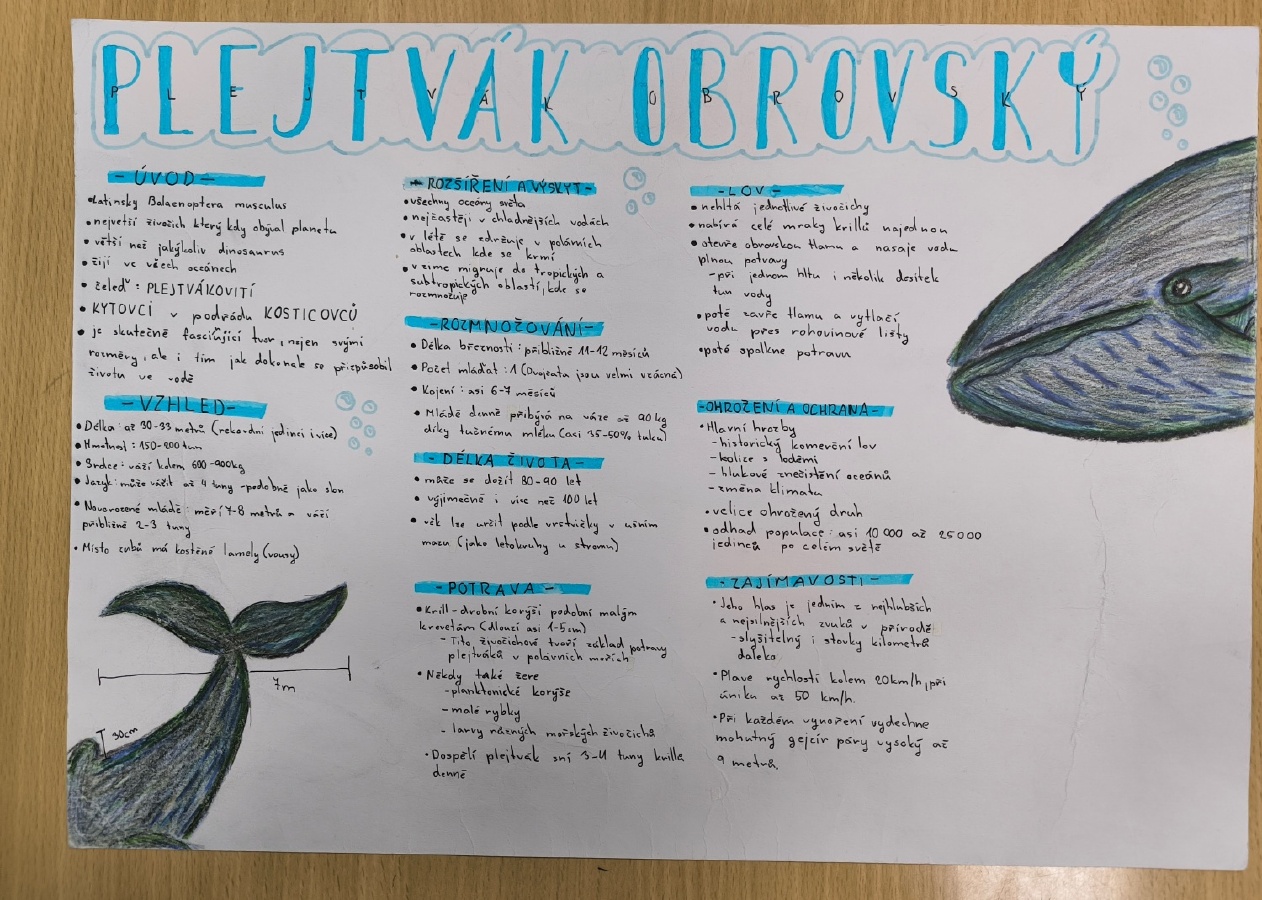 PLEJTVÁK OBROVSKÝ
P L E J T V Á K O B R O V S K Ý
- ÚVOD -
• Latinsky Balaenoptera musculus
• největší živočich který kdy obýval planetu
• větší než jakýkoliv dinosaurus
• žijí ve všech oceánech
• čeleď: PLEJTVÁKOVITÍ
• KYTOVCI v podřádu KOSTICOVCŮ
• je skutečně fascinující tvor, nejen svými
rozměry, ale i tím jak dokonale se přizpůsobil
životu ve vodě
- VZHLED -
• Délka: až 30-33 metrů (rekordní jedinci i více)
• Hmotnost: 150-200 tun
• Srdce: váží kolem 600-900kg
• Jazyk: může vážit až 4 tuny - podobně jako slon
• Novorozené mládě: měří 7-8 metrů a váží
přibližně 2-3 tuny
• Místo zubů má kostěné lamely (vousy)
7m
30cm
- ROZŠÍŘENÍ A VÝSKYT -
• všechny oceány světa
• nejčastěji v chladnějších vodách
• v létě se zdržuje v polárních
oblastech kde se krmí
• v zimě migruje do tropických a
subtropických oblastí, kde se
rozmnožuje
- ROZMNOŽOVÁNÍ -
• Délka březnosti: přibližně 11-12 měsíců
• Počet mláďat: 1 (Dvojčata jsou velmi vzácná)
• Kojení: asi 6-7 měsíců
• Mládě denně přibývá na váze až 90kg
díky tučnému mléku (asi 35-50% tuku)
- DÉLKA ŽIVOTA -
• může se dožít 80-90 let
• výjimečně i více než 100 let
• věk lze určit podle vrstvičky v ušním
mazu (jako letokruhy u stromu)
- POTRAVA -
• Krill - drobní korýši podobní malým
krevetám (dlouzí asi 1-5cm)
- Tito živočichové tvoří základ potravy
plejtváků v polárních mořích
• Někdy také žere
- planktonické korýše
- malé rybky
- larvy různých mořských živočichů
• Dospělí plejtvák sní 3-4 tuny krilla
denně
- LOV -
• nehltá jednotlivé živočichy
• nabírá celé mraky krillů najednou
• otevře obrovskou tlamu a nasaje vodu
plnou potravy
- při jednom hltu i několik desítek
tun vody
• poté zavře tlamu a vytlačí
vodu přes rohovinové lišty
• poté spolkne potravu
- OHROŽENÍ A OCHRANA -
• Hlavní hrozby
- historický komerční lov
- kolize s loděmi
- hlukové znečistění oceánů
- změna klimatu
• velice ohrožený druh
• odhad populace: asi 10 000 až 25 000
jedinců po celém světě
- ZAJÍMAVOSTI -
• Jeho hlas je jedním z nejhlubších
a nejsilnějších zvuků v přírodě
- slyšitelný i stovky kilometrů
daleko
• Plave rychlostí kolem 20km/h, při
úniku až 50 km/h.
• Při každém vynoření vydechne
mohutný gejzír páry vysoký až
9 metrů.